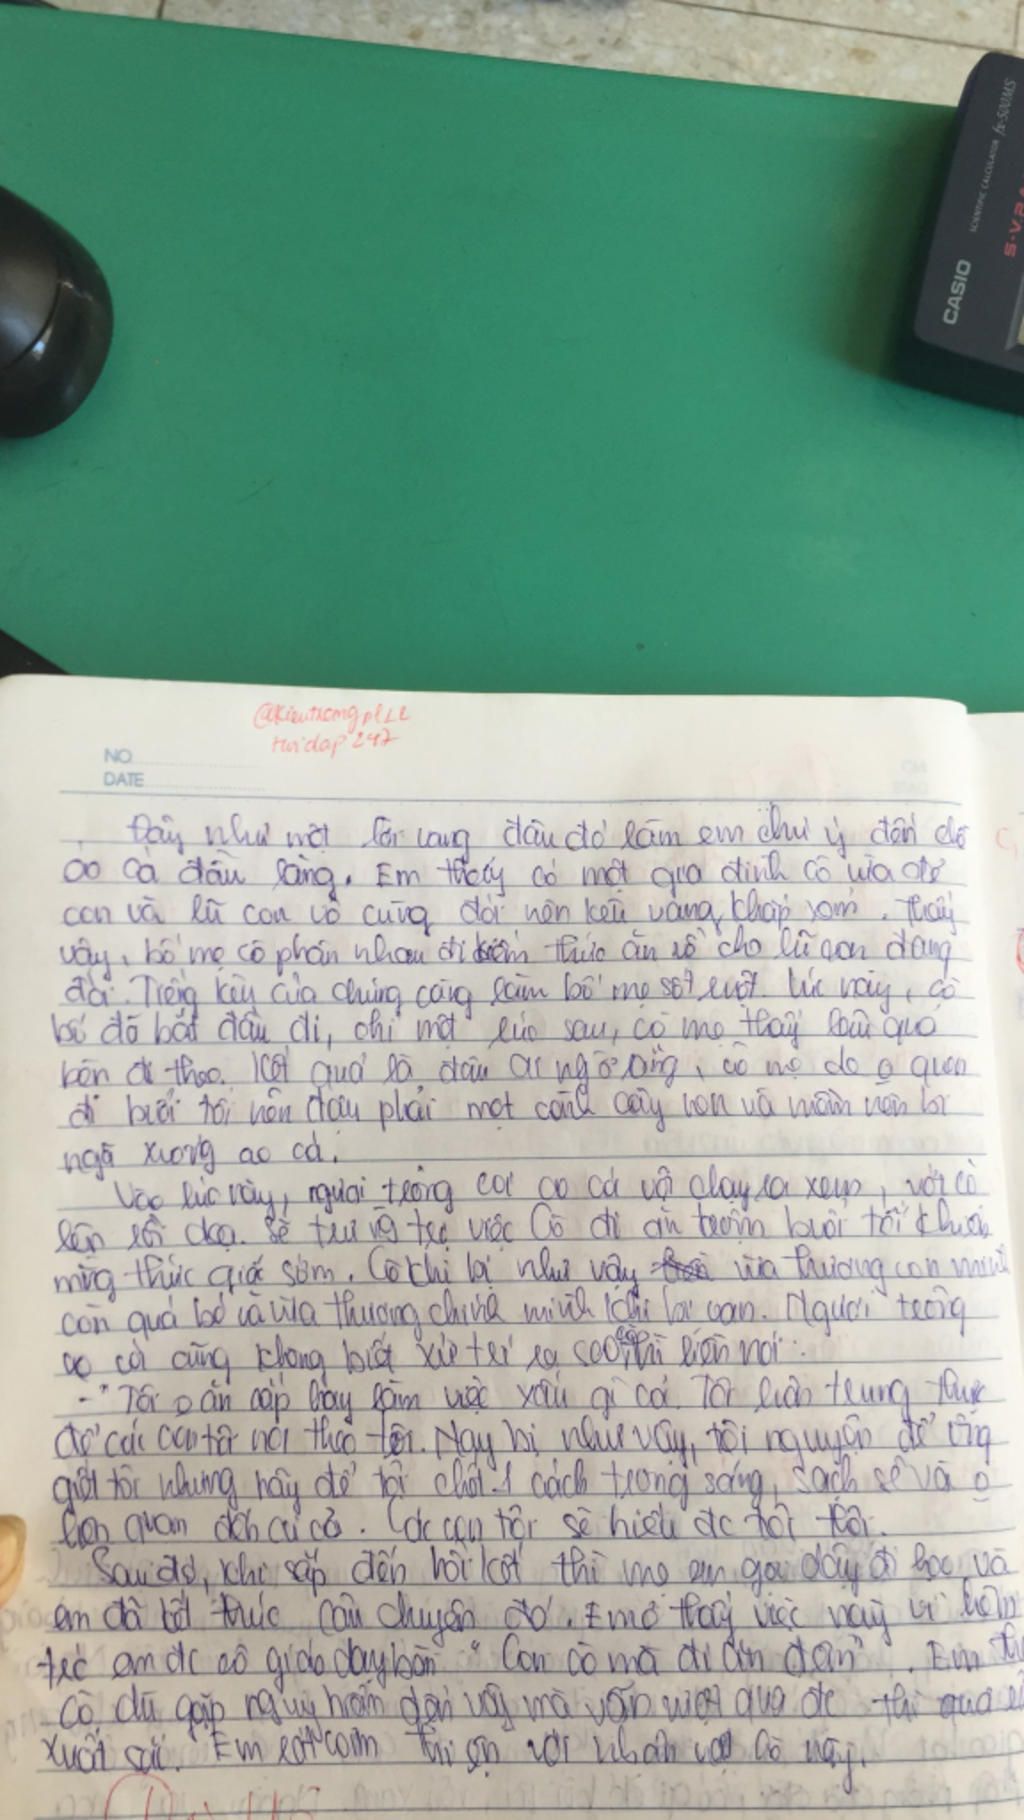 CASIO
SCIENTIFIC CALCULATOR fx-500MS
S-V.P.A
@kieutrangpl
tuidap 247
NO
DATE
Đây như một lời vang đâu đó làm em chú ý đến chỗ
ao cá đầu làng. Em thấy có một gia đình cò vừa đẻ
con và lũ con vô cùng đói nên kêu vang khắp xóm. Thấy
vậy, bố mẹ cò phân nhau đi kiếm thức ăn về cho lũ con đang
đói. Tiếng kêu của chúng càng làm bố mẹ sốt ruột. Lúc này, cò
bố đã bắt đầu đi, chỉ một lúc sau, cò mẹ thấy lâu quá
bèn đi theo. Kết quả là đâu ai ngờ rằng, cò mẹ do o quen
đi buổi tối nên đậu phải một cành cây non và mềm nên bị
ngã xuống ao cá.
Vào lúc này, người trông coi ao cá vội chạy ra xem, vớt cò
lên rồi dọa sẽ trừng trị việc Cò đi ăn trộm buổi tối khiến
mừng thức giấc sớm. Cò khi bị như vậy vừa thương con mình
còn quá bé và vừa thương chính mình khi bị oan. Người trông
ao cá cũng không biết xử trí ra sao, cò thì liền nói:
- "Tôi o ăn cắp hay làm việc xấu gì cả. Tôi luôn trung thực
để các con tôi noi theo tôi. Nay bị như vậy, tôi nguyện để ông
giết tôi nhưng hãy để tôi chết 1 cách trong sáng, sạch sẽ và o
liên quan đến cái cả. Các con tôi sẽ hiểu đc tôi thôi.
Sau đó, khi sắp đến hồi kết thì mẹ em gọi dậy đi học và
em đã kết thúc câu chuyện đó. Em thấy việc này vì hôm
trc em đc cô giáo dạy bài "Con cò mà đi ăn đêm". Em
Cò dù gặp nguy hiểm đến vậy mà vẫn vượt qua đc thì quá
xuất sắc. Em rất cảm với nhân vật Cò này.